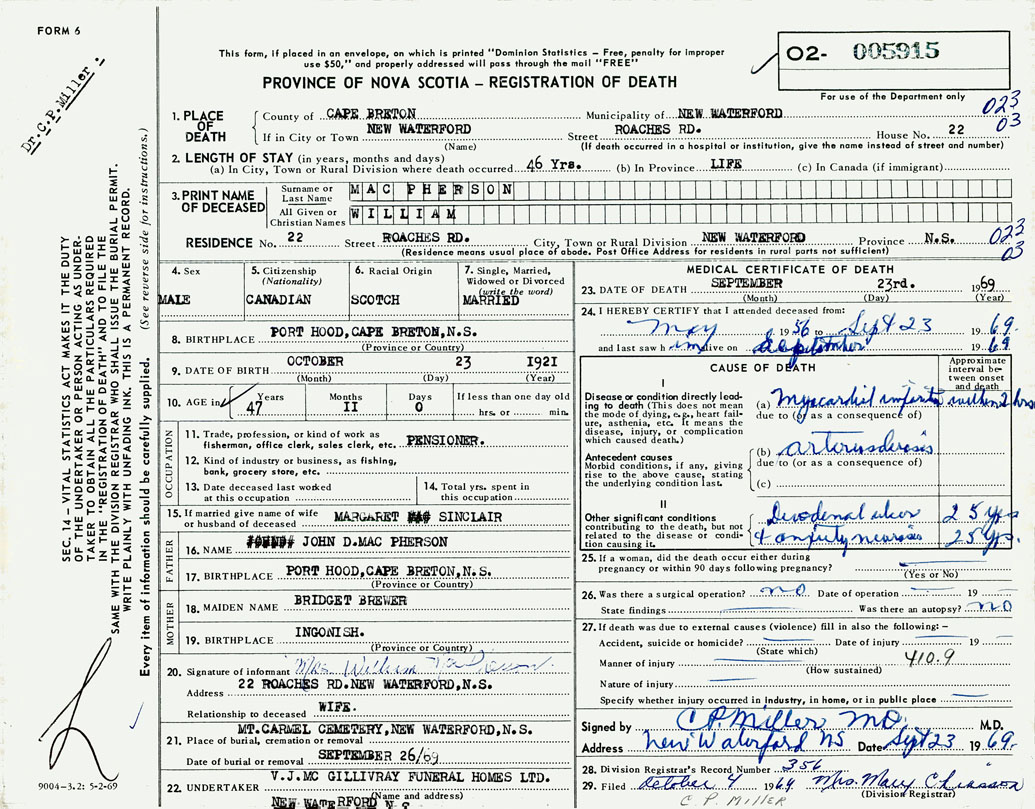 FORM 6
Dr. C.P. Miller.
This form, if placed in an envelope, on which is printed "Dominion Statistics – Free, penalty for improper
use $50," and properly addressed will pass through the mail "FREE"
O2- 005915
PROVINCE OF NOVA SCOTIA – REGISTRATION OF DEATH
For use of the Department only
023
03
1. PLACE OF DEATH
County of CAPE BRETON Municipality of NEW WATERFORD
If in City or Town NEW WATERFORD Street ROACHES RD. House No. 22
(Name) (If death occurred in a hospital or institution, give the name instead of street and number)
2. LENGTH OF STAY (in years, months and days)
(a) In City, Town or Rural Division where death occurred 46 Yrs. (b) In Province LIFE (c) In Canada (if immigrant)
3. PRINT NAME OF DECEASED
Surname or Last Name MAC PHERSON
All Given or Christian Names WILLIAM
RESIDENCE No. 22 Street ROACHES RD. City, Town or Rural Division NEW WATERFORD Province N.S.
(Residence means usual place of abode. Post Office Address for residents in rural parts not sufficient)
023
03
4. Sex
MALE
5. Citizenship
(Nationality)
CANADIAN
6. Racial Origin
SCOTCH
7. Single, Married,
Widowed or Divorced
(write the word)
MARRIED
8. BIRTHPLACE PORT HOOD,CAPE BRETON,N.S.
(Province or Country)
9. DATE OF BIRTH OCTOBER 23 1921
(Month) (Day) (Year)
10. AGE in Years Months Days If less than one day old
47 II 0 hrs. or min.
OCCUPATION
11. Trade, profession, or kind of work as
fisherman, office clerk, sales clerk, etc. PENSIONER.
12. Kind of industry or business, as fishing,
bank, grocery store, etc.
13. Date deceased last worked
at this occupation
14. Total yrs. spent in
this occupation
15. If married give name of wife
or husband of deceased MARGARET SINCLAIR
FATHER
16. NAME JOHN D.MAC PHERSON
17. BIRTHPLACE PORT HOOD,CAPE BRETON,N.S.
(Province or Country)
MOTHER
18. MAIDEN NAME BRIDGET BREWER
19. BIRTHPLACE INGONISH.
(Province or Country)
20. Signature of informant Mrs. William
Address 22 ROACHES RD.NEW WATERFORD,N.S.
Relationship to deceased WIFE.
MT.CARMEL CEMETERY,NEW WATERFORD,N.S.
21. Place of burial, cremation or removal
Date of burial or removal SEPTEMBER 26/69
V.J.MC GILLIVRAY FUNERAL HOMES LTD.
22. UNDERTAKER (Name and address)
NEW WATERFORD N.S.
MEDICAL CERTIFICATE OF DEATH
23. DATE OF DEATH SEPTEMBER 23rd. 1969
(Month) (Day) (Year)
24. I HEREBY CERTIFY that I attended deceased from:
May 1956 to Sept 23 1969.
and last saw him alive on 1969
CAUSE OF DEATH
Approximate interval between onset and death
I
Disease or condition directly leading to death (This does not mean the mode of dying, e.g., heart failure, asthenia, etc. It means the disease, injury, or complication which caused death.)
(a) Myocardial within 2 hrs
due to (or as a consequence of)
Antecedent causes
Morbid conditions, if any, giving rise to the above cause, stating the underlying condition last.
(b) arteriosclerosis
due to (or as a consequence of)
(c)
II
Other significant conditions
contributing to the death, but not related to the disease or condition causing it.
Duodenal ulcer 25 yrs
& anxiety neurosis 25 yrs.
25. If a woman, did the death occur either during
pregnancy or within 90 days following pregnancy?
(Yes or No)
26. Was there a surgical operation? no Date of operation 19
State findings Was there an autopsy? no
27. If death was due to external causes (violence) fill in also the following: –
Accident, suicide or homicide? Date of injury 19
(State which)
Manner of injury 410.9
(How sustained)
Nature of injury
Specify whether injury occurred in industry, in home, or in public place
Signed by C P. Miller MD. M.D.
Address New Waterford NS Date Sept 23 1969.
28. Division Registrar's Record Number 356
29. Filed October 4 1969. Mrs. Mary Chiasson
(Division Registrar)
C P. MILLER
SEC. 14 – VITAL STATISTICS ACT MAKES IT THE DUTY
OF THE UNDERTAKER OR PERSON ACTING AS UNDER-
TAKER TO OBTAIN ALL THE PARTICULARS REQUIRED
IN THE "REGISTRATION OF DEATH" AND TO FILE THE
SAME WITH THE DIVISION REGISTRAR WHO SHALL ISSUE THE BURIAL PERMIT.
WRITE PLAINLY WITH UNFADING INK. THIS IS A PERMANENT RECORD.
Every item of information should be carefully supplied. (See reverse side for instructions.)
9004-3.2: 5-2-69